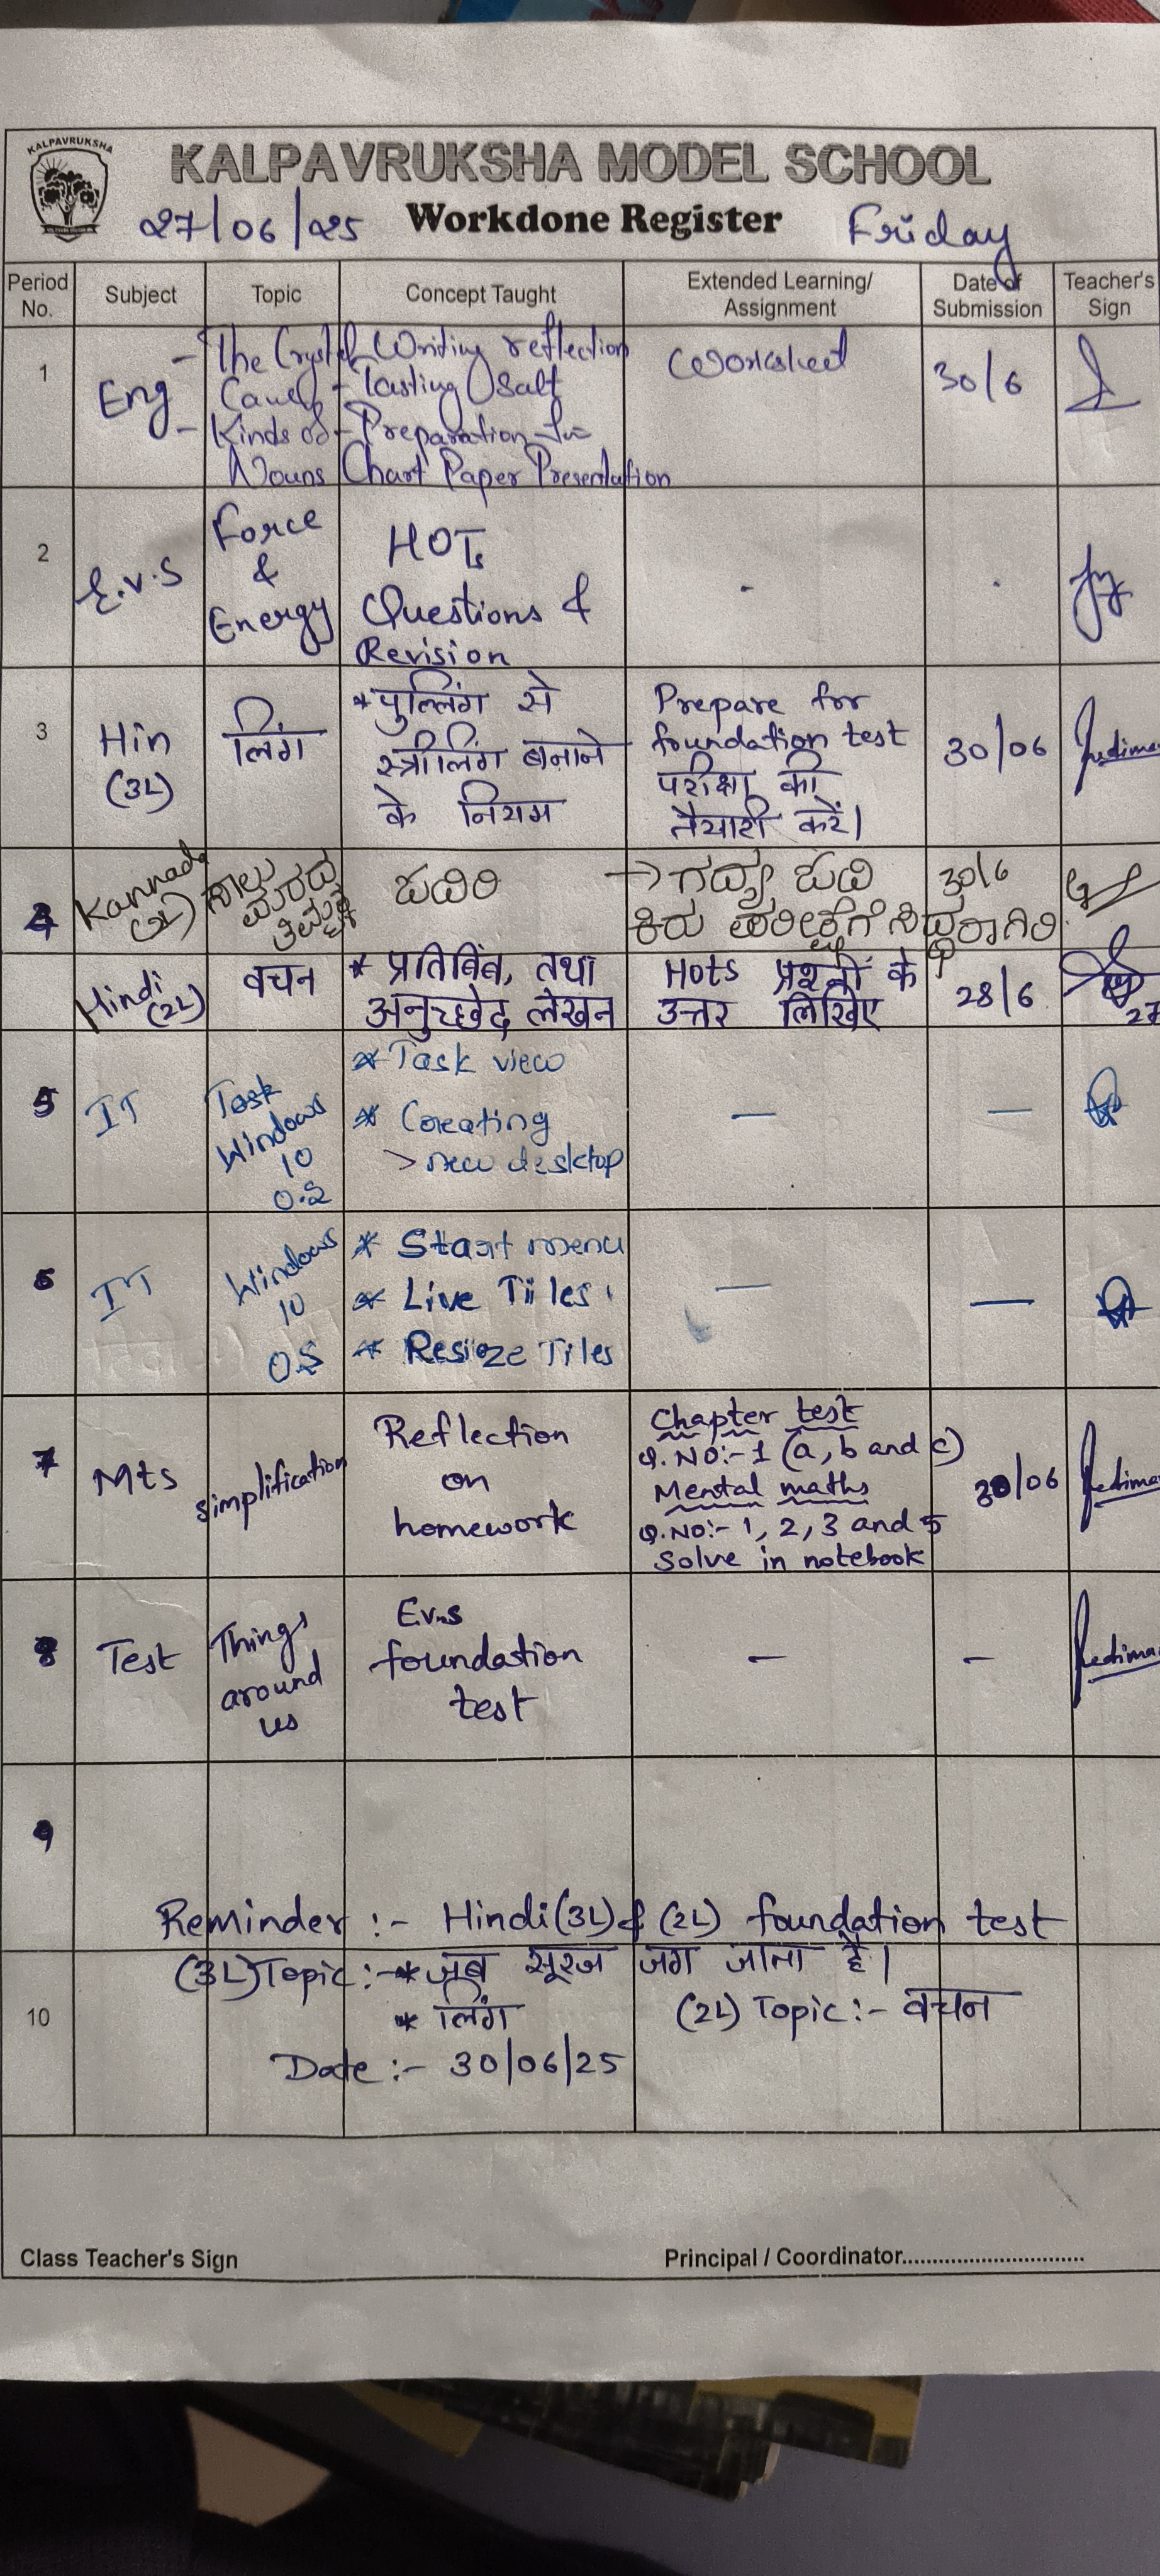 KALPAVRUKSHA
KALPAVRUKSHA MODEL SCHOOL
27/06/25 Workdone Register Friday
Period No. Subject Topic Concept Taught Extended Learning/ Assignment Date of Submission Teacher's Sign
1 Eng - The Crystal - Writing reflection Worksheet 30/6
Caves - Tasting Salt
- Kinds of - Preparation for
Nouns Chart Paper Presentation
2 E.V.S Force & Energy HOTs
Questions &
Revision - .
3 Hin (3L) लिंग * पुल्लिंग से
स्त्रीलिंग बनाने
के नियम
Prepare for
foundation test
परीक्षा की
तैयारी करें।
30/06
4 Kannada (2L) ಸಾಲು ಮರದ ತಿಮ್ಮಕ್ಕ → ಗದ್ಯ ಓದಿ 30/6
ಕಿರು ಪರೀಕ್ಷೆಗೆ ಸಿದ್ಧರಾಗಿರಿ
Hindi (2L) वचन * प्रतिबिंब, तथा
अनुच्छेद लेखन
Hots प्रश्नों के
उत्तर लिखिए
28/6 27
5 IT Task Windows 10 * Task view
* Creating
> new desktop — —
6 IT Windows 10 * Start menu
* Live Tiles
* Resize Tiles — —
7 Mts simplification Reflection
on
homework
Chapter test
Q.NO:- 1 (a, b and c)
Mental maths
Q.NO:- 1, 2, 3 and 5
Solve in notebook
30/06
8 Test Things around us Ev.s
foundation
test - -
9
Reminder :- Hindi (3L) & (2L) foundation test
(3L) Topic :- * जब सूरज जग जाता है।
10 * लिंग (2L) Topic :- वचन
Date :- 30/06/25
Class Teacher's Sign Principal / Coordinator..............................